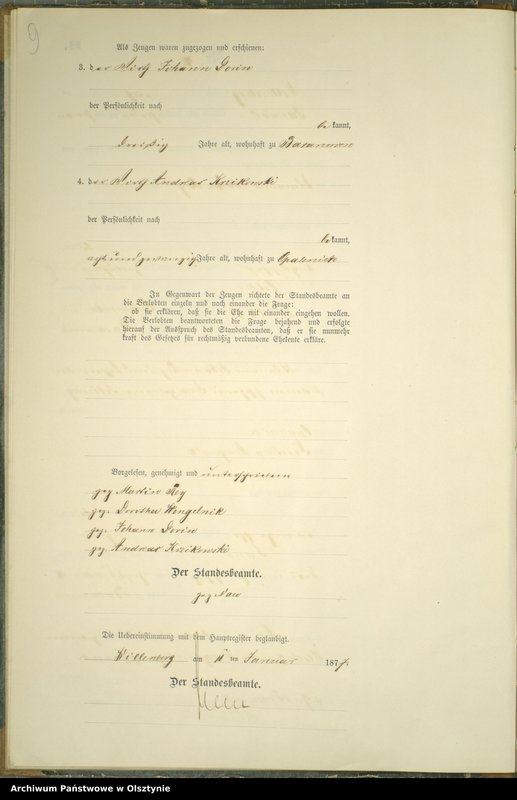 9
Als Zeugen waren zugezogen und erschienen:
3. der Wirth Johann Dorin
der Persönlichkeit nach
bekannt,
dreißig Jahre alt, wohnhaft zu Baranowen
4. der Wirth Andreas Krzikowski
der Persönlichkeit nach
bekannt,
achtundzwanzig Jahre alt, wohnhaft zu Opalenietz
In Gegenwart der Zeugen richtete der Standesbeamte an
die Verlobten einzeln und nach einander die Frage:
ob sie erklären, daß sie die Ehe mit einander eingehen wollen.
Die Verlobten beantworteten die Frage bejahend und erfolgte
hierauf der Ausspruch des Standesbeamten, daß er sie nunmehr
kraft des Gesetzes für rechtmäßig verbundene Eheleute erkläre.
Vorgelesen, genehmigt und unterschrieben
gez. Martin Rey
gez. Dorothea Wengelnik
gez. Johann Dorin
gez. Andreas Krzikowski
Der Standesbeamte.
gez.
Die Uebereinstimmung mit dem Hauptregister beglaubigt.
Willenberg am 11 ten Januar 1877.
Der Standesbeamte.
Archiwum Państwowe w Olsztynie